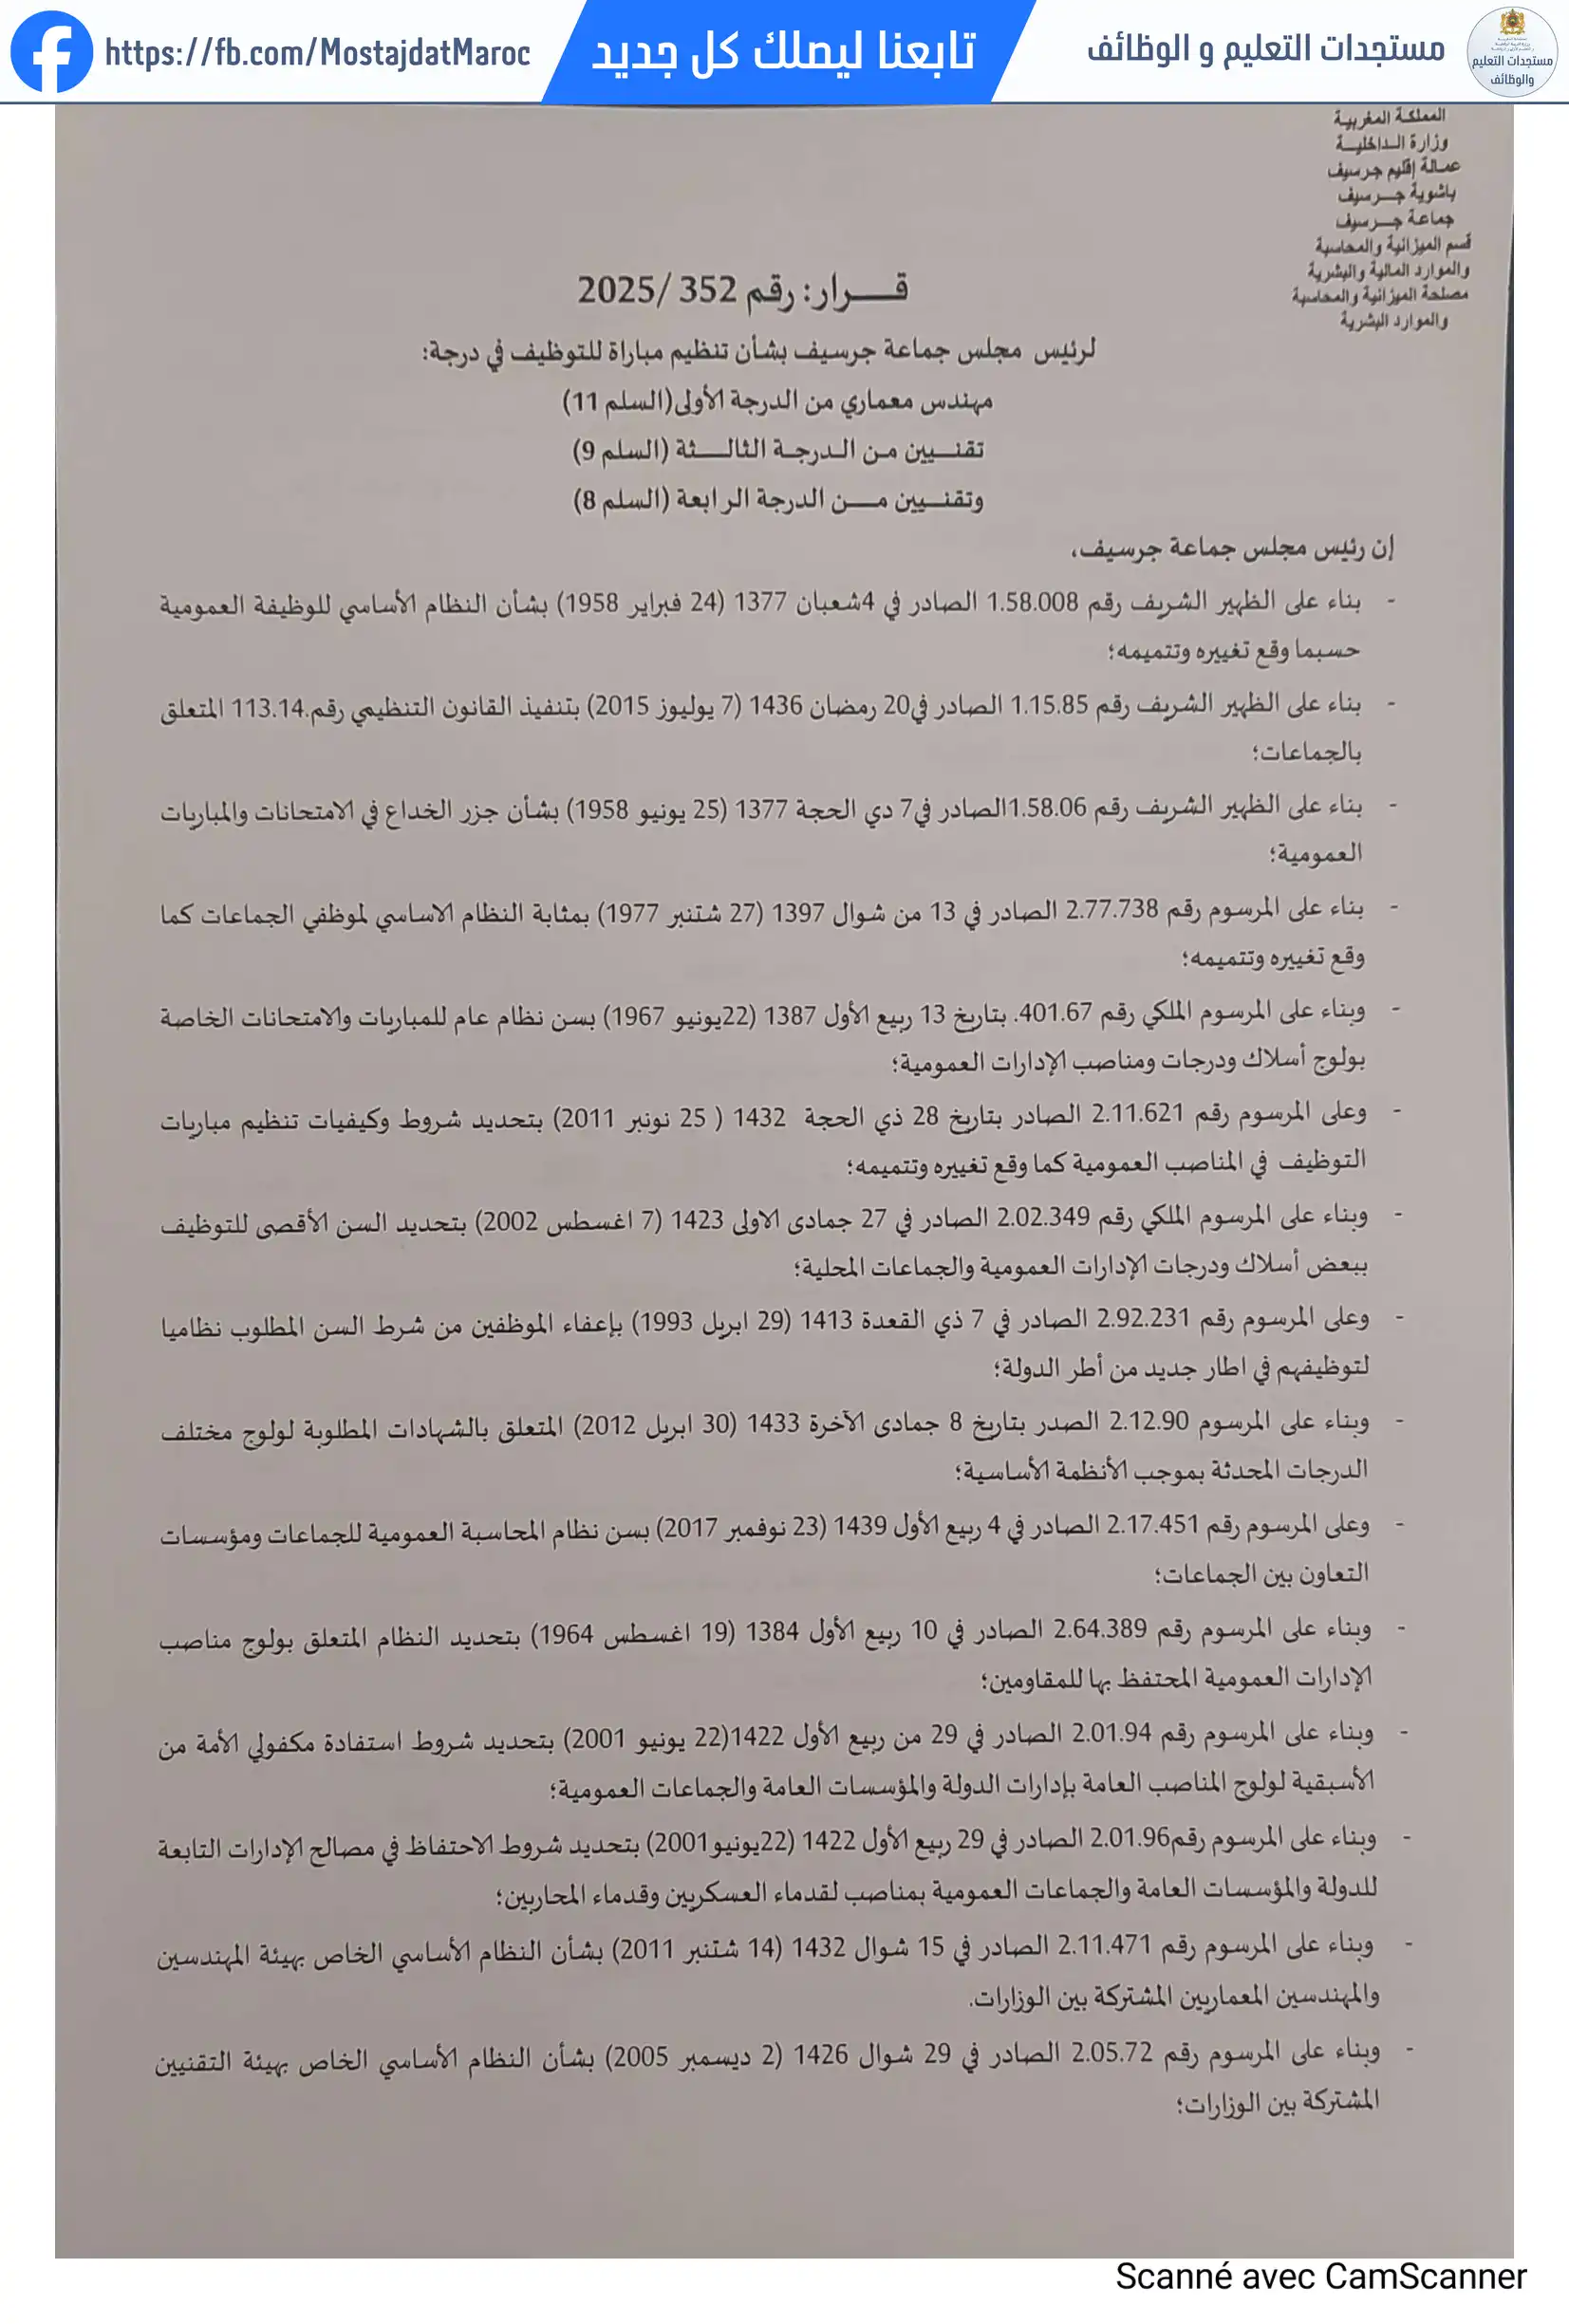 https://fb.com/MostajdatMaroc
تابعنا ليصلك كل جديد
مستجدات التعليم و الوظائف
مستجدات التعليم
والوظائف
المملكة المغربية
وزارة الداخليـــة
عمـالة إقليم جرسيف
باشوية جـــرسيف
جماعة جـــرسيف
قسم الميزانية والمحاسبة
والموارد المالية والبشرية
مصلحة الميزانية والمحاسبة
والموارد البشرية
قــــرار: رقم 352 /2025
لرئيس مجلس جماعة جرسيف بشأن تنظيم مباراة للتوظيف في درجة:
مهندس معماري من الدرجة الأولى(السلم 11)
تقنـــيين مـن الـدرجـة الثالــــثة (السلم 9)
وتقنـــيين مــــن الدرجة الرابعة (السلم 8)
إن رئيس مجلس جماعة جرسيف،
- بناء على الظهير الشريف رقم 1.58.008 الصادر في 4شعبان 1377 (24 فبراير 1958) بشأن النظام الأساسي للوظيفة العمومية
حسبما وقع تغييره وتتميمه؛
- بناء على الظهير الشريف رقم 1.15.85 الصادر في20 رمضان 1436 (7 يوليوز 2015) بتنفيذ القانون التنظيمي رقم.113.14 المتعلق
بالجماعات؛
- بناء على الظهير الشريف رقم 1.58.06الصادر في7 دي الحجة 1377 (25 يونيو 1958) بشأن جزر الخداع في الامتحانات والمباريات
العمومية؛
- بناء على المرسوم رقم 2.77.738 الصادر في 13 من شوال 1397 (27 شتنبر 1977) بمثابة النظام الاساسي لموظفي الجماعات كما
وقع تغييره وتتميمه؛
- وبناء على المرسوم الملكي رقم 401.67. بتاريخ 13 ربيع الأول 1387 (22يونيو 1967) بسن نظام عام للمباريات والامتحانات الخاصة
بولوج أسلاك ودرجات ومناصب الإدارات العمومية؛
- وعلى المرسوم رقم 2.11.621 الصادر بتاريخ 28 ذي الحجة 1432 ( 25 نونبر 2011) بتحديد شروط وكيفيات تنظيم مباريات
التوظيف في المناصب العمومية كما وقع تغييره وتتميمه؛
- وبناء على المرسوم الملكي رقم 2.02.349 الصادر في 27 جمادى الاولى 1423 (7 اغسطس 2002) بتحديد السن الأقصى للتوظيف
ببعض أسلاك ودرجات الإدارات العمومية والجماعات المحلية؛
- وعلى المرسوم رقم 2.92.231 الصادر في 7 ذي القعدة 1413 (29 ابريل 1993) بإعفاء الموظفين من شرط السن المطلوب نظاميا
لتوظيفهم في اطار جديد من أطر الدولة؛
- وبناء على المرسوم 2.12.90 الصدر بتاريخ 8 جمادى الآخرة 1433 (30 ابريل 2012) المتعلق بالشهادات المطلوبة لولوج مختلف
الدرجات المحدثة بموجب الأنظمة الأساسية؛
- وعلى المرسوم رقم 2.17.451 الصادر في 4 ربيع الأول 1439 (23 نوفمبر 2017) بسن نظام المحاسبة العمومية للجماعات ومؤسسات
التعاون بين الجماعات؛
- وبناء على المرسوم رقم 2.64.389 الصادر في 10 ربيع الأول 1384 (19 اغسطس 1964) بتحديد النظام المتعلق بولوج مناصب
الإدارات العمومية المحتفظ بها للمقاومين؛
- وبناء على المرسوم رقم 2.01.94 الصادر في 29 من ربيع الأول 1422(22 يونيو 2001) بتحديد شروط استفادة مكفولي الأمة من
الأسبقية لولوج المناصب العامة بإدارات الدولة والمؤسسات العامة والجماعات العمومية؛
- وبناء على المرسوم رقم2.01.96 الصادر في 29 ربيع الأول 1422 (22يونيو2001) بتحديد شروط الاحتفاظ في مصالح الإدارات التابعة
للدولة والمؤسسات العامة والجماعات العمومية بمناصب لقدماء العسكريين وقدماء المحاربين؛
- وبناء على المرسوم رقم 2.11.471 الصادر في 15 شوال 1432 (14 شتنبر 2011) بشأن النظام الأساسي الخاص بهيئة المهندسين
والمهندسين المعماريين المشتركة بين الوزارات.
- وبناء على المرسوم رقم 2.05.72 الصادر في 29 شوال 1426 (2 ديسمبر 2005) بشأن النظام الأساسي الخاص بهيئة التقنيين
المشتركة بين الوزارات؛
Scanné avec CamScanner